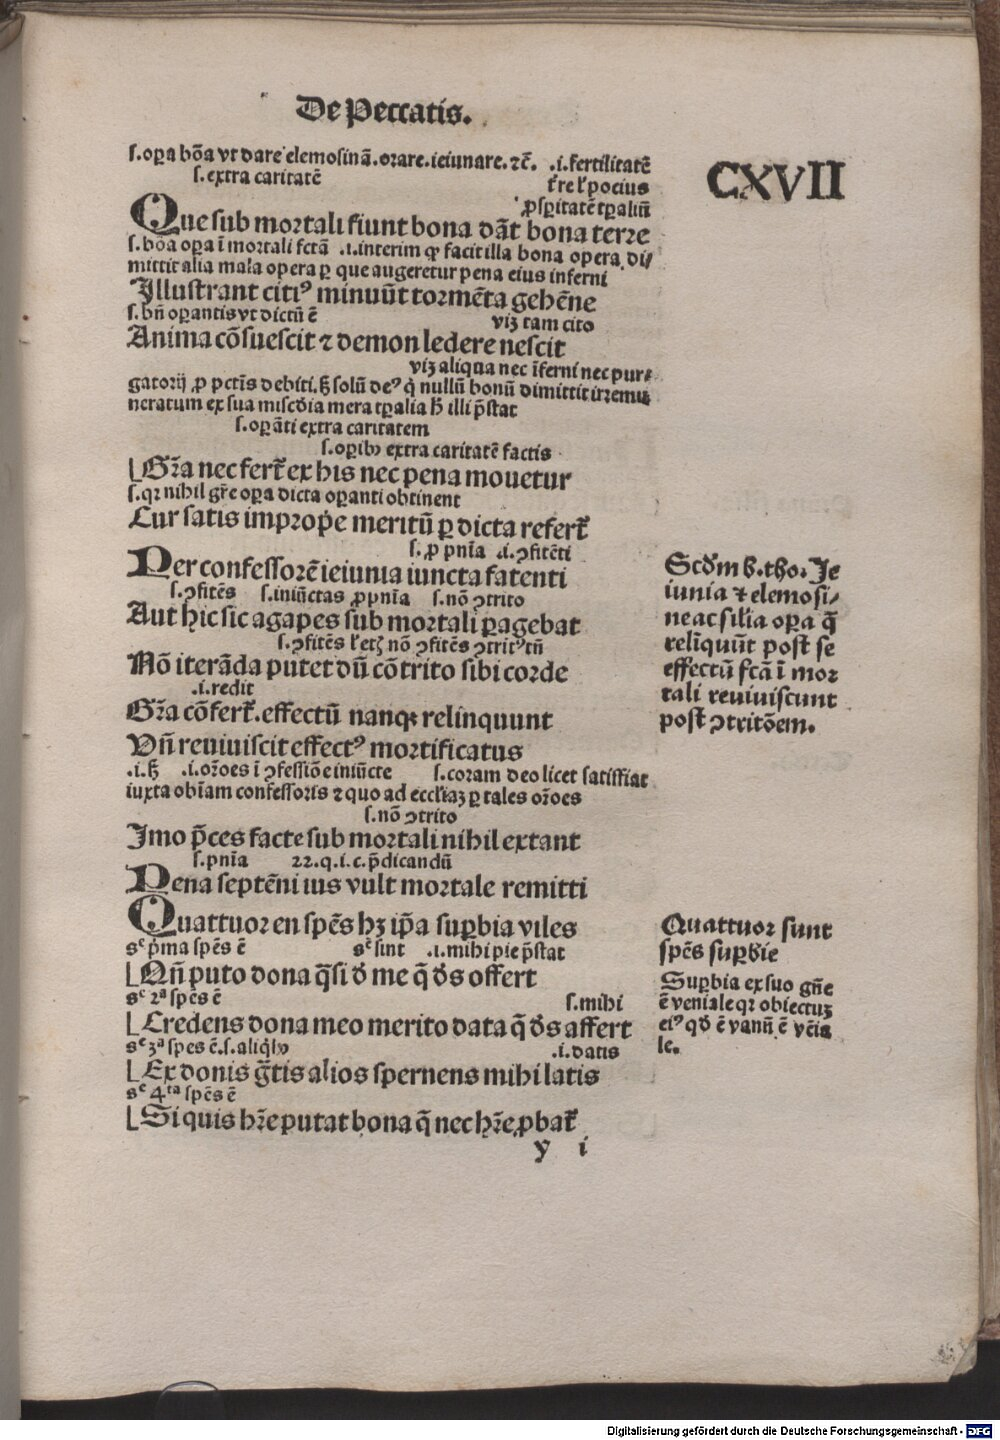 De Peccatis.
CXVII
s. oꝑa bōa vt dare elemosinā. orare. ieiunare. ⁊c̄. .i. fertilitatē
s. extra caritatē t̄re l' pocius
ꝓsꝑitatē tꝑaliū
Que sub mortali fiunt bona dāt bona terre
s. bōa oꝑa ī mortali fctā .i. interim qꝛ facit illa bona opera di/
mittit alia mala opera ꝑ que augeretur pena eius inferni
Illustrant citiꝰ minuūt tormēta gehēne
s. bn̄ oꝑantis vt dictū ē viꝫ tam cito
Anima cōsuescit ⁊ demon ledere nescit
viꝫ aliqua nec īferni nec pur⸗
gatorij ꝓ pctīs debiti. sꝫ solū deꝰ q̇ nullū bonū dimittit irremu
neratum ex sua misc̄dia mera tꝑalia h̄ illi p̄stat
s. oꝑāti extra caritatem
s. oꝑibꝰ extra caritatē factis
Gr̄a nec fert̄ ex his nec pena mouetur
s. qꝛ nihil gr̄e oꝑa dicta oꝑanti obtinent
Cur satis imprope meritū ꝑ dicta refert̄
s. ꝓ pnīa .i. ꝯfitēti
Per confessorē ieiunia iuncta fatenti
s. ꝯfitēs s. iniūctas ꝓ pnīa s. nō ꝯtrito
Aut hic sic agapes sub mortali ꝑagebat
s. ꝯfitēs l' etꝫ nō ꝯfitēs ꝯtritꝰ tn̄
Nō iterāda putet dū cōtrito sibi corde
.i. redit
Gr̄a cōfert̄. effectū nanqꝫ relinquunt
Vn̄ reuiuiscit effectꝰ mortificatus
.i. sꝫ .i. orōes ī ꝯfessiōe iniūcte s. coram deo licet satisfiat
iuxta obīam confessoris ⁊ quo ad eccl'iaꝫ ꝑ tales orōes
s. nō ꝯtrito
Imo p̄ces facte sub mortali nihil extant
s. pnīa 22. q. i. c. p̄dicandū
Pena septēni ius vult mortale remitti
Quattuor en spēs hꝫ ip̄a suꝑbia viles
sᶜ p̄ma spēs ē sᶜ sint .i. mihi pie p̄stat
Nū puto dona q̄si d̄ me q̄ d̄s offert
sᶜ 2ᵃ spēs ē s. mihi
Credens dona meo merito data q̄ d̄s affert
sᶜ 3ᵃ spes ē. s. aliq̇bꝰ .i. datis
Ex donis gr̄tis alios spernens mihi latis
sᶜ 4ᵗᵃ spēs ē
Si quis hr̄e putat bona q̄ nec hr̄e ꝓbat̄
y i
Scd̄m b. tho. Ie
iunia ⁊ elemosi⸗
ne ac sil'ia oꝑa q̄
relīquūt post se
effectū fcā ī mor
tali reuiuiscunt
post ꝯtritōem.
Quattuor sunt
spēs suꝑbie
Suꝑbia ex suo gn̄e
ē veniale qꝛ obiectuꝫ
eiꝰ qd̄ ē vanū ē vēia
le.
Digitalisierung gefördert durch die Deutsche Forschungsgemeinschaft - DFG